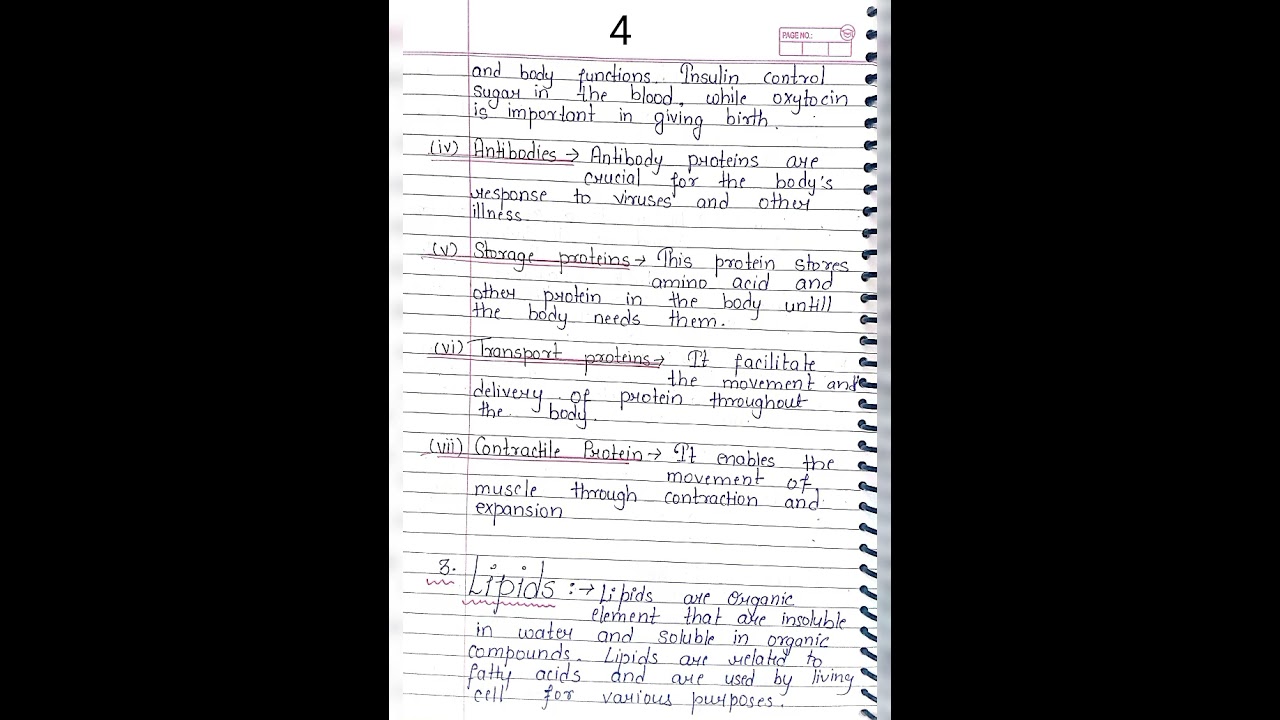 4
PAGE NO.:
and body functions. Insulin control
sugar in the blood, while oxytocin
is important in giving birth.
(iv) Antibodies → Antibody proteins are
crucial for the body's
response to viruses and other
illness.
(v) Storage proteins → This protein stores
amino acid and
other protein in the body untill
the body needs them.
(vi) Transport proteins → It facilitate
the movement and
delivery of protein throughout
the body.
(viii) Contractile Protein → It enables the
movement of
muscle through contraction and
expansion
3. Lipids :→ Lipids are organic
element that are insoluble
in water and soluble in organic
compounds. Lipids are related to
fatty acids and are used by living
cell for various purposes.